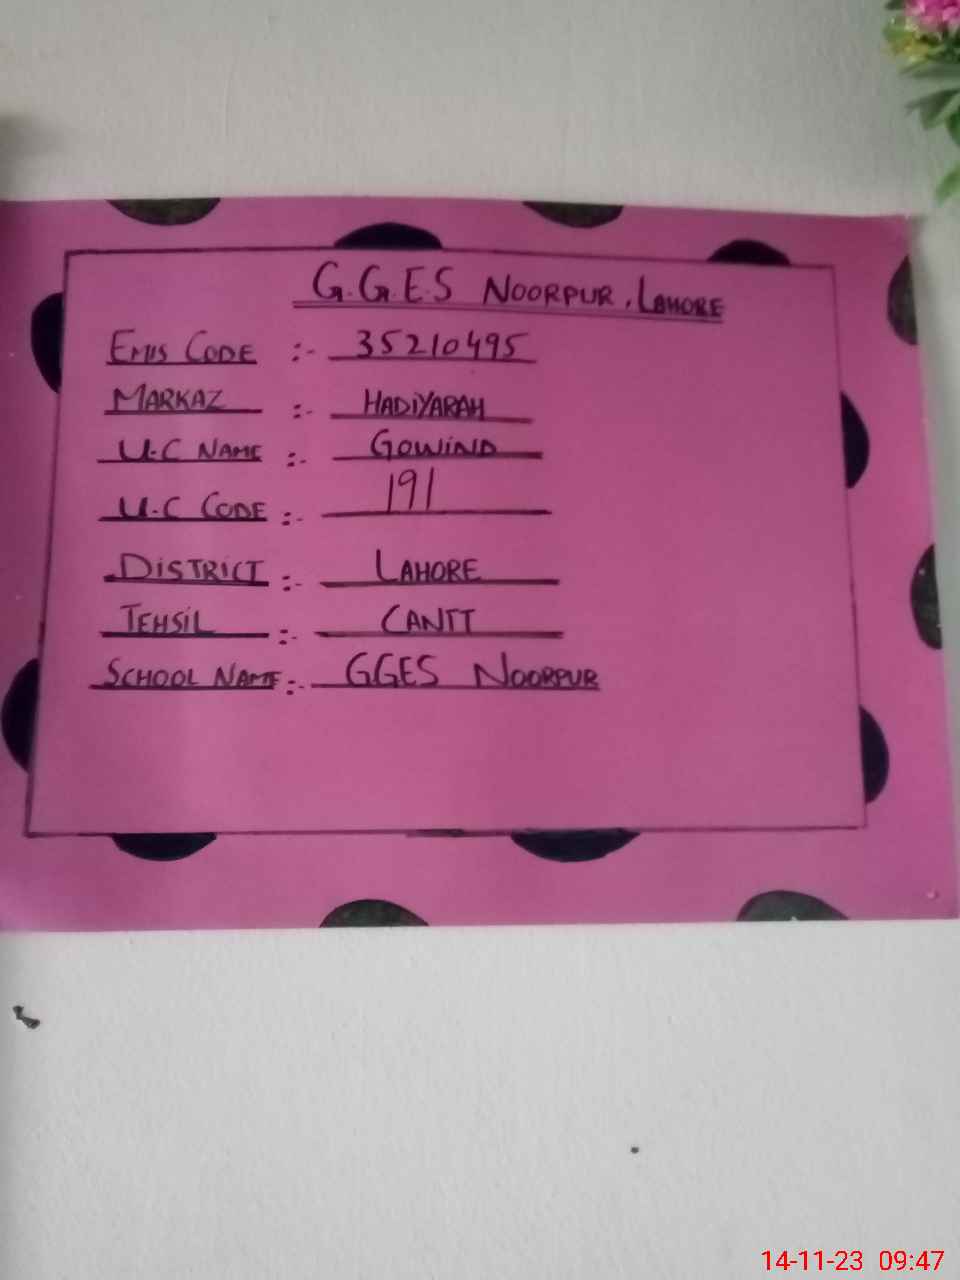 G.G.E.S NOORPUR, LAHORE
EMIS CODE :- 35210495
MARKAZ :- HADIYARAH
U.C NAME :- GOWIND
U.C CODE :- 191
DISTRICT :- LAHORE
TEHSIL :- CANTT
SCHOOL NAME :- GGES NOORPUR
14-11-23 09:47